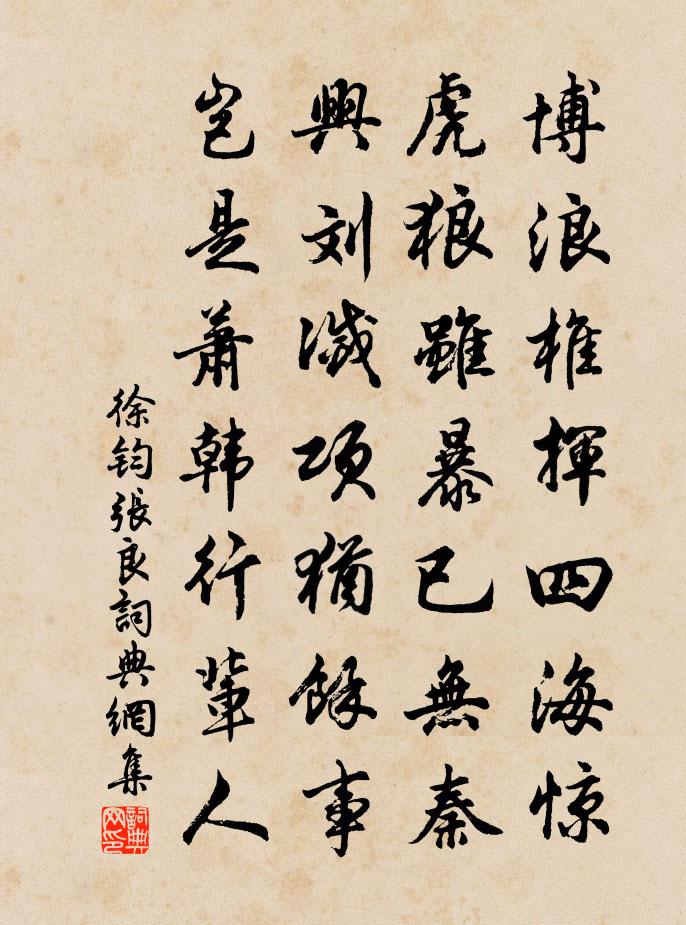 博浪椎揮四海惊
虎狼雖暴已無秦
興刘滅项猶餘事
岂是萧韩行輩人
徐钧張良詞典網集
詞典網印